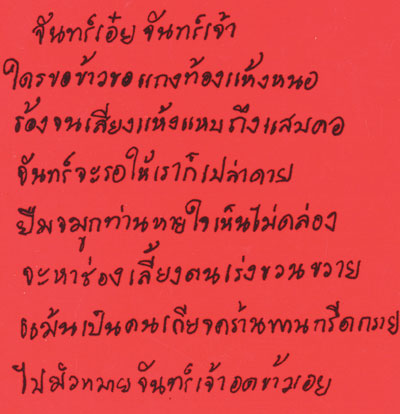 จันทร์เอ๋ย จันทร์เจ้า
ใครขอข้าวขอแกงท้องแห้งหนอ
ร้องจนเสียงแห้งแหบถึงแสบคอ
จันทร์จะรอให้เราก็เปล่าดาย
ยืมจมูกท่านหายใจเห็นไม่คล่อง
จะหาช่องเลี้ยงตนเร่งขวนขวาย
แม้นเป็นคนเกียจคร้านพานกรีดกราย
ไปมัวหมาย จันทร์เจ้าอดข้าวเอย